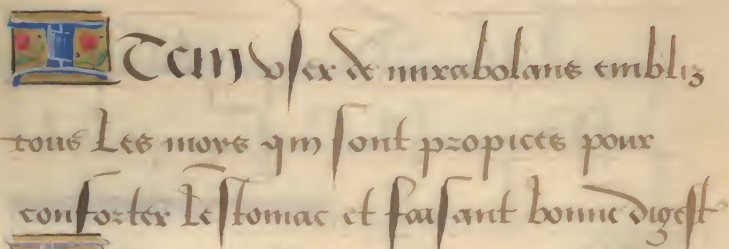 ITem vser de mirabolans emblis
tous Les moys qui sont propices pour
conforter Lestomac et faisant bonne digest